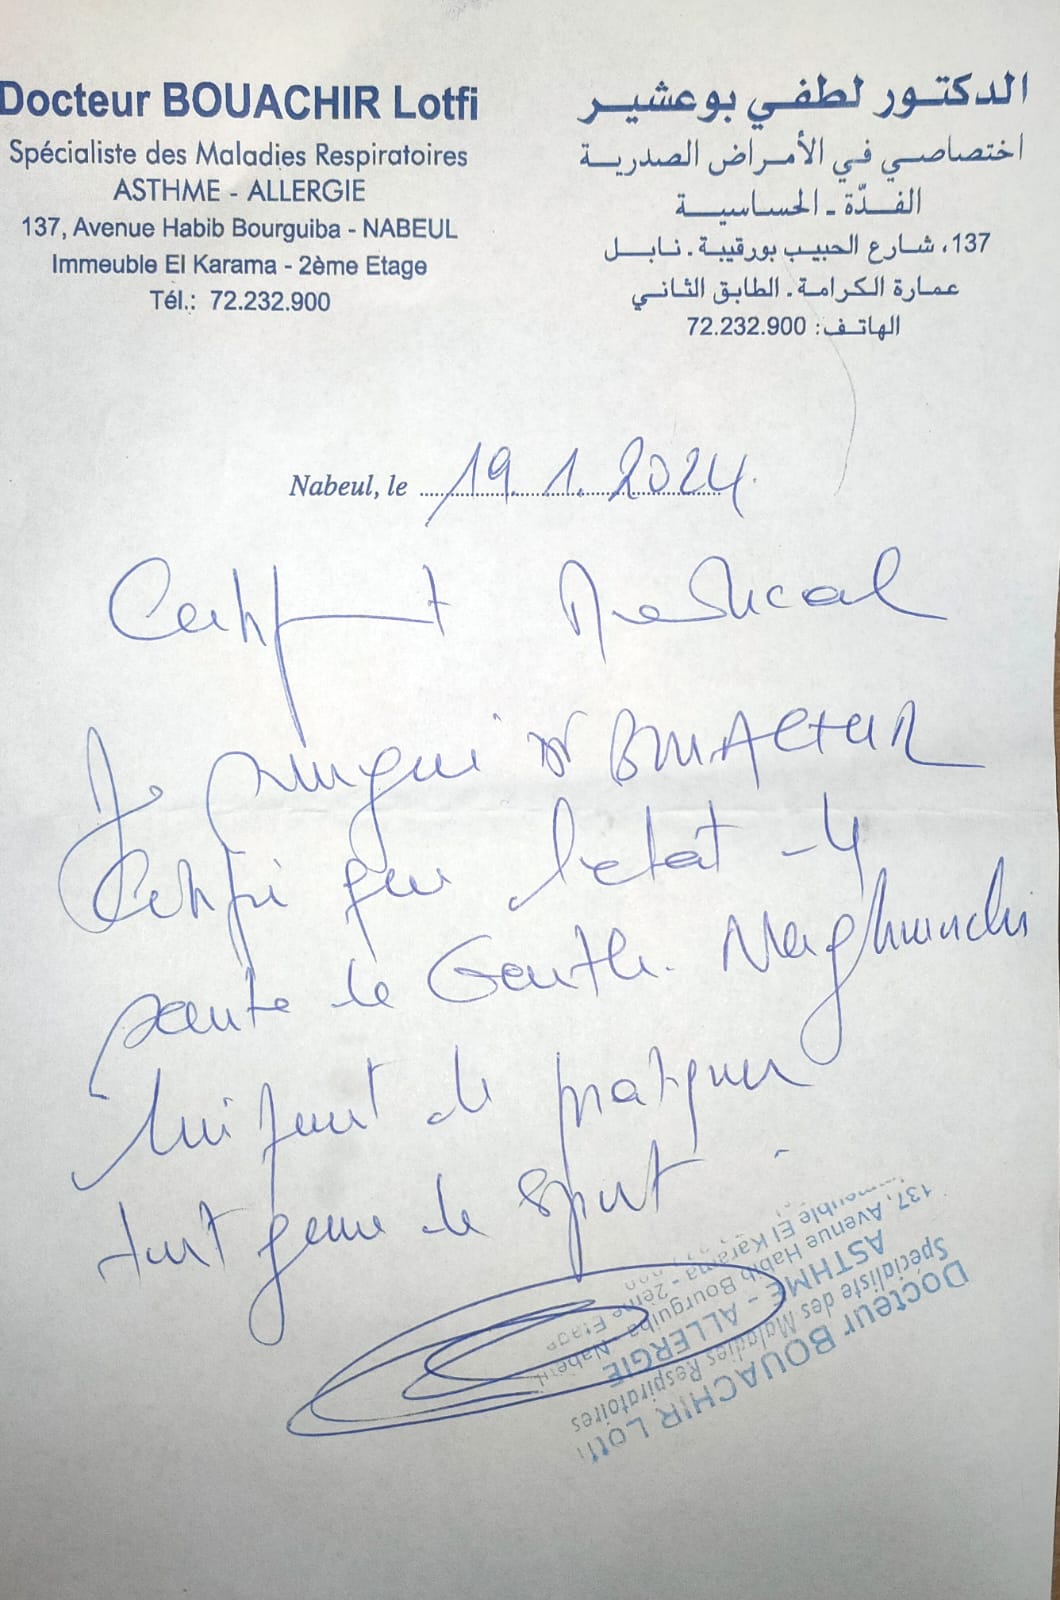 Docteur BOUACHIR Lotfi
Spécialiste des Maladies Respiratoires
ASTHME - ALLERGIE
137, Avenue Habib Bourguiba - NABEUL
Immeuble El Karama - 2ème Etage
Tél.: 72.232.900
الدكتور لطفي بوعشير
اختصاصي في الأمراض الصدرية
الفدّة - الحساسية
137، شارع الحبيب بورقيبة - نابل
عمارة الكرامة - الطابق الثاني
الهاتف: 72.232.900
Nabeul, le 19.1.2024
Certificat Medical
Je soussigné Dr BOUACHIR
Certifie que l'etat de
sante de
lui permet de pratiquer
tout genre de sport.
Docteur BOUACHIR Lotfi
Spécialiste des Maladies Respiratoires
ASTHME - ALLERGIE
137, Avenue Habib Bourguiba - Nabeul
Immeuble El Karama - 2ème Etage